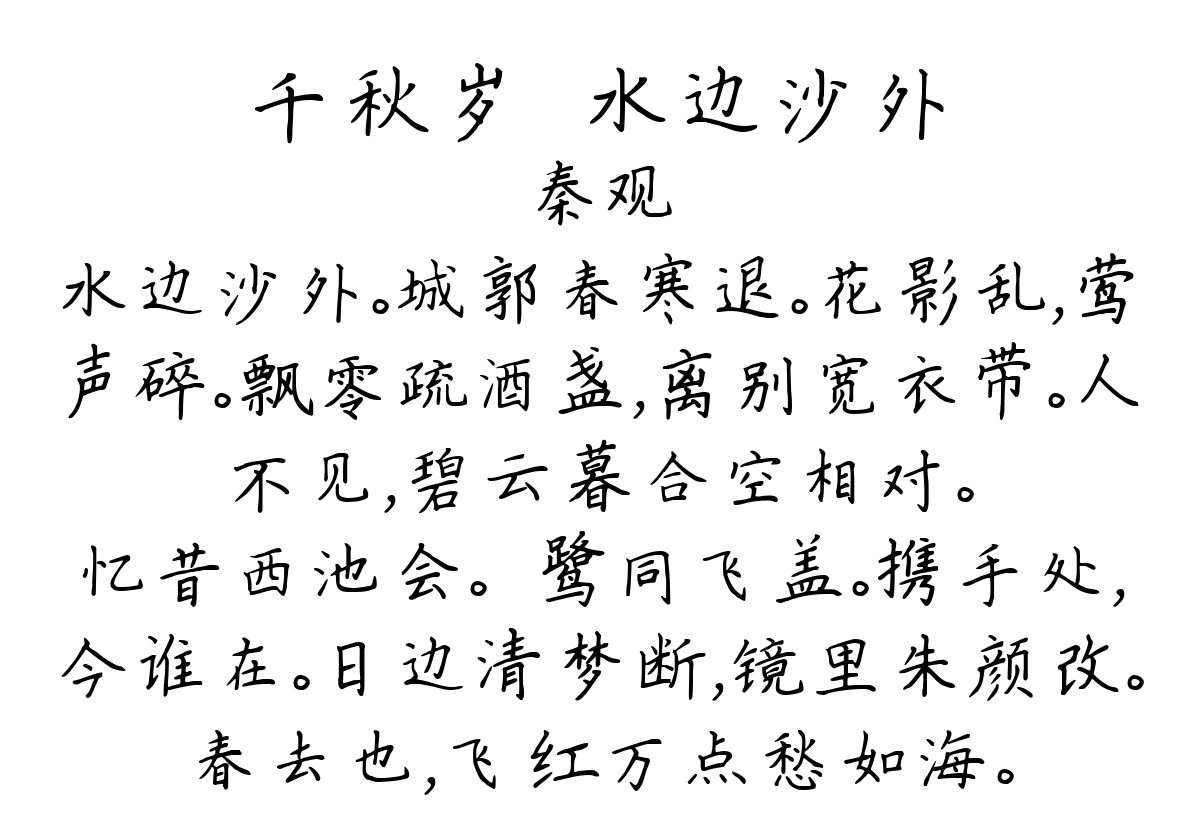 千秋岁 水边沙外
秦观
水边沙外。城郭春寒退。花影乱,莺
声碎。飘零疏酒盏,离别宽衣带。人
不见,碧云暮合空相对。
忆昔西池会。鹭同飞盖。携手处,
今谁在。日边清梦断,镜里朱颜改。
春去也,飞红万点愁如海。